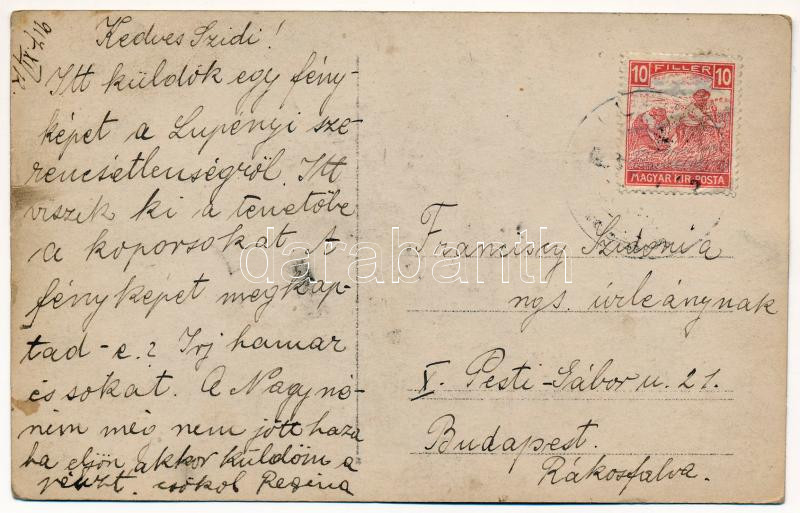 917 IX/7.
Kedves Szidi!
Itt küldök egy fény-
képet a Lupényi sze
rencsétlenségről. Itt
viszik ki a temetőbe
a koporsokat. A
fényképet megkap-
tad-e? Irj hamar
és sokat. A Nagynéném
ném még nem jött haza
ha eljön akkor küldöm a
csókol Regina
10 FILLÉR 10
MAGYAR KIR. POSTA
Franciscy Szidonia
ngs. úrleánynak
X. Pesti-Gábor u. 21.
Budapest.
Rákosfalva.
darabanth